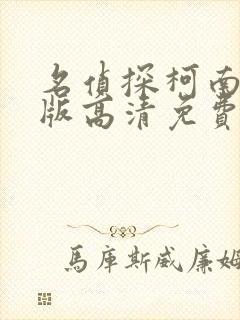 名偵探柯南
版高清免費
馬庫斯威廉姆